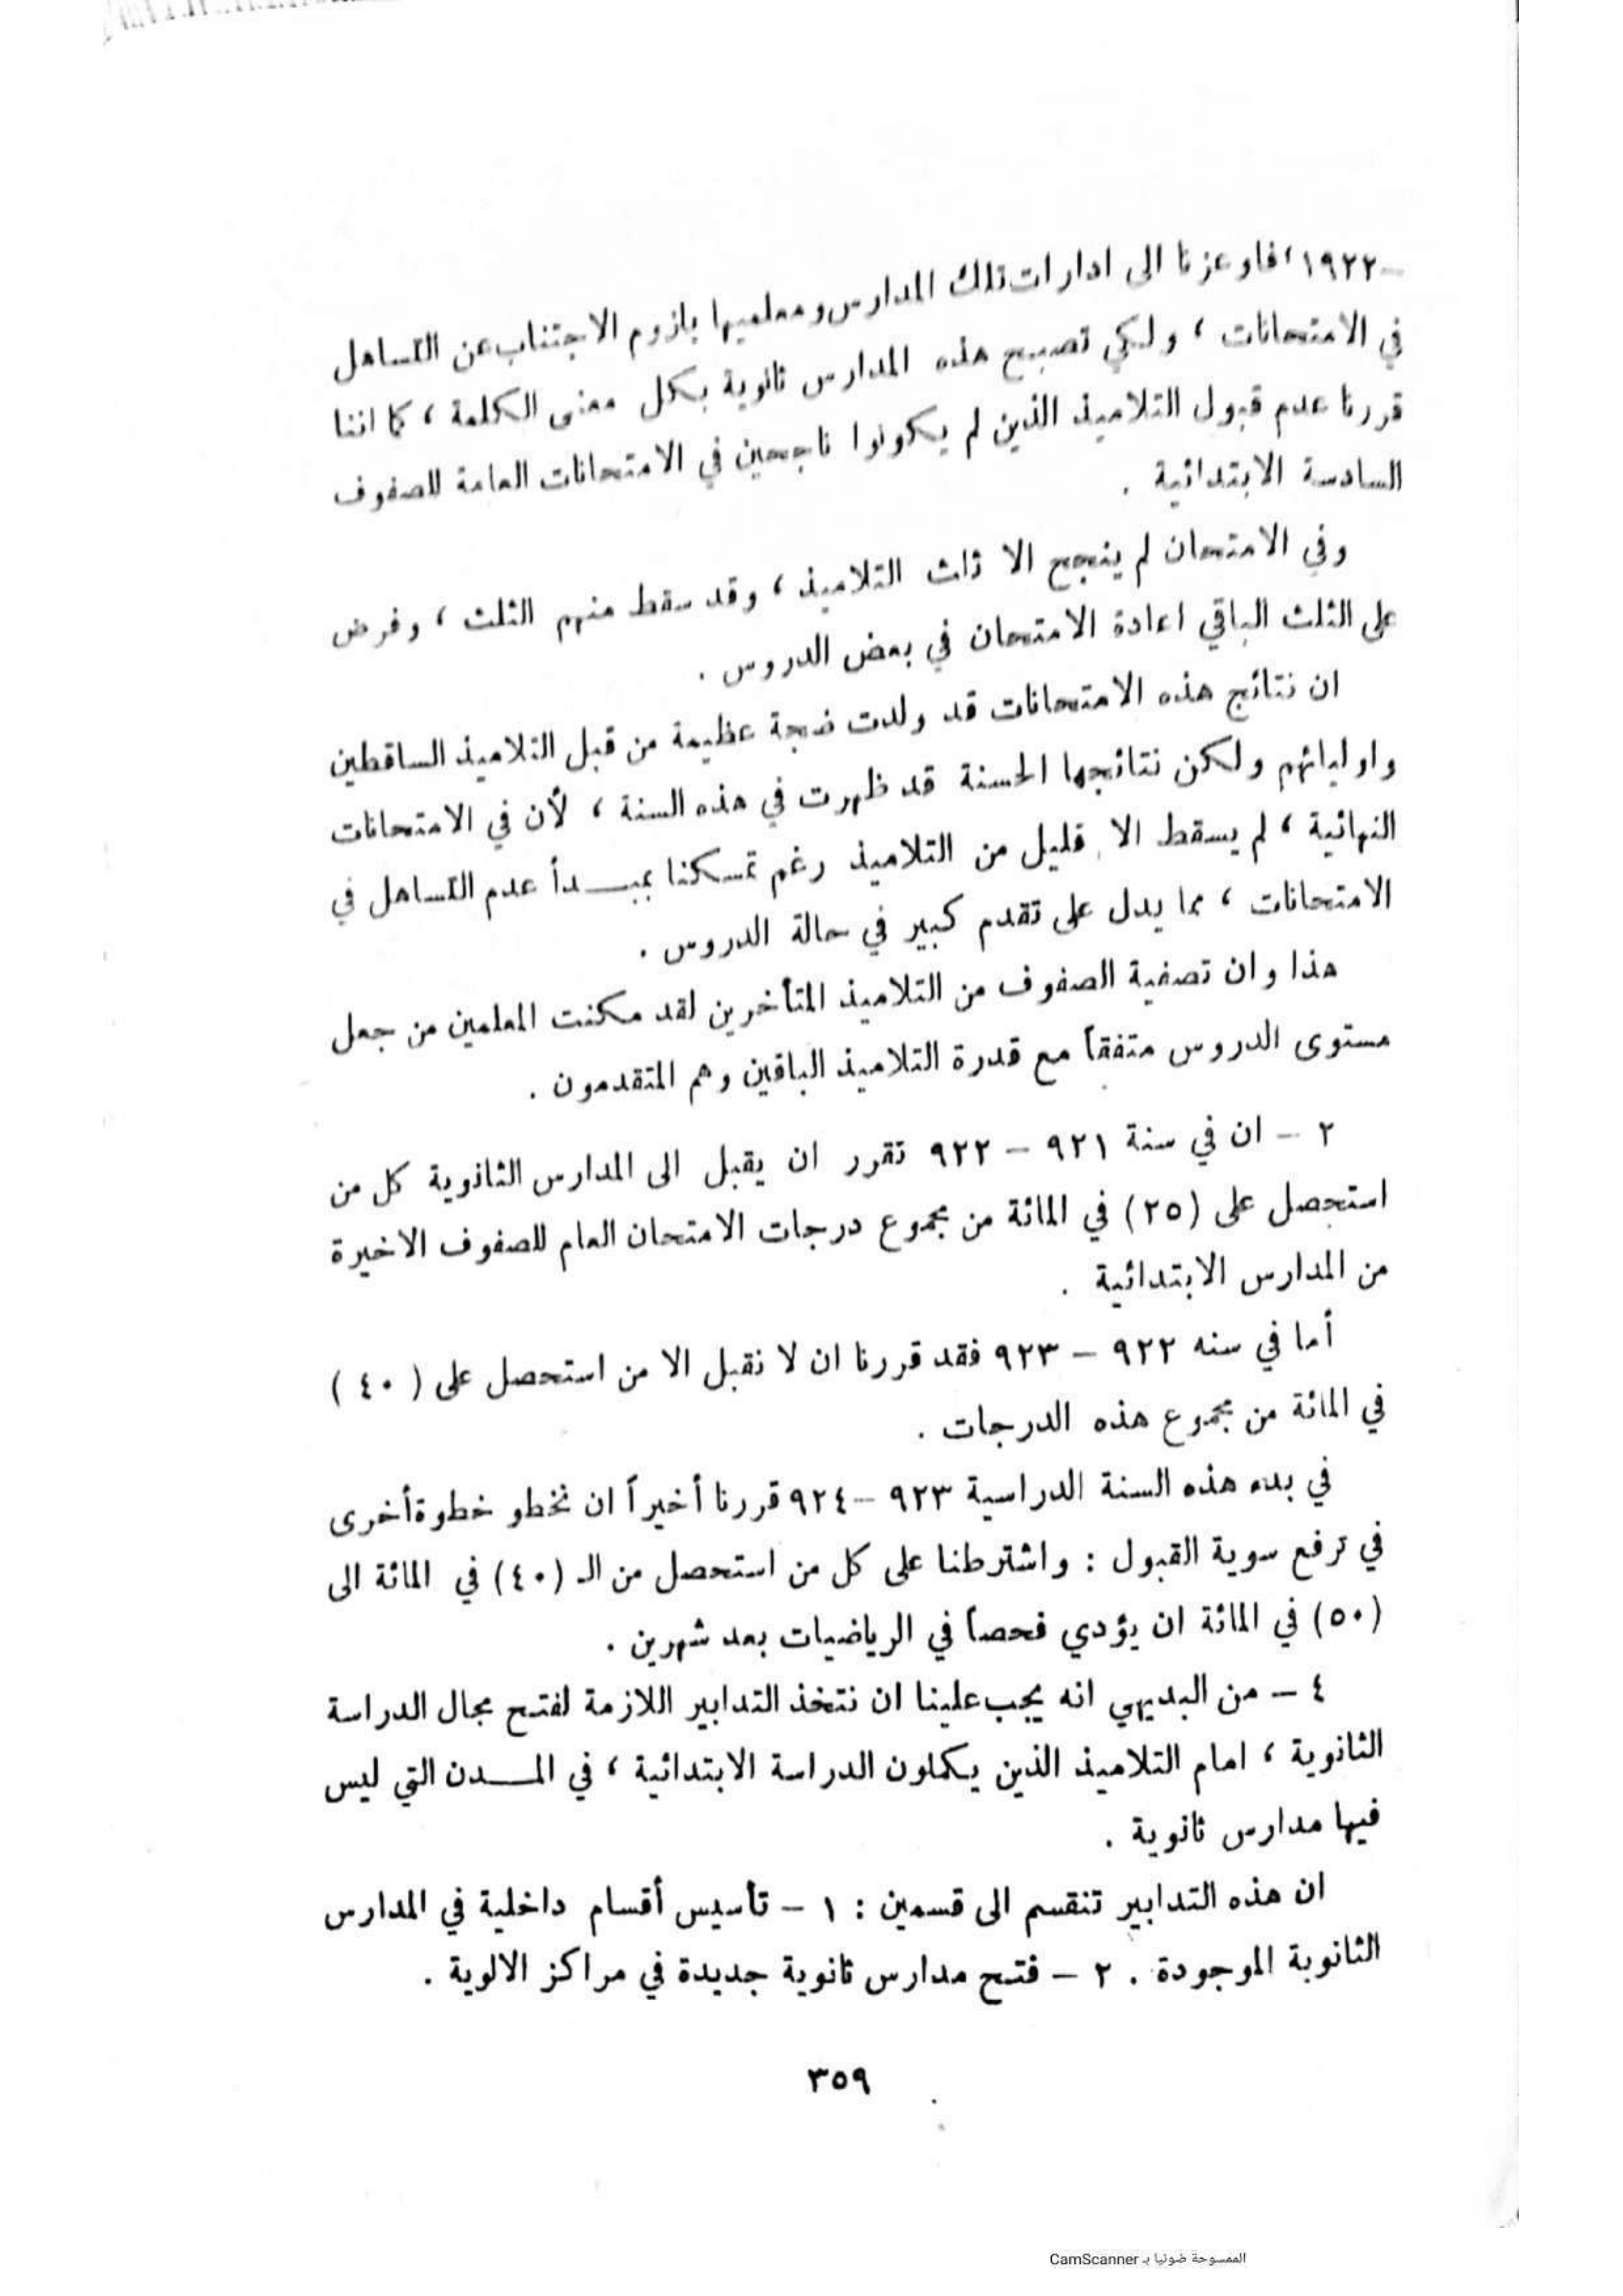 -١٩٢٢، فاوعزنا الى ادارات تلك المدارس ومعلميها بلزوم الاجتناب عن التساهل
في الامتحانات ، ولكي تصبح هذه المدارس ثانوية بكل معنى الكلمة ، كما اننا
قررنا عدم قبول التلاميذ الذين لم يكونوا ناجحين في الامتحانات العامة للصفوف
السادسة الابتدائية .
وفي الامتحان لم ينجح الا ثلث التلاميذ ، وقد سقط منهم الثلث ، وفرض
على الثلث الباقي اعادة الامتحان في بعض الدروس .
ان نتائج هذه الامتحانات قد ولدت ضجة عظيمة من قبل التلاميذ الساقطين
واوليائهم ولكن نتائجها الحسنة قد ظهرت في هذه السنة ، لأن في الامتحانات
النهائية ، لم يسقط الا قليل من التلاميذ رغم تمسكنا بمبـــدأ عدم التساهل في
الامتحانات ، مما يدل على تقدم كبير في حالة الدروس .
هذا وان تصفية الصفوف من التلاميذ المتأخرين لقد مكنت المعلمين من جعل
مستوى الدروس متفقاً مع قدرة التلاميذ الباقين وهم المتقدمون .
٢ - ان في سنة ٩٢١ - ٩٢٢ تقرر ان يقبل الى المدارس الثانوية كل من
استحصل على (٢٥) في المائة من مجموع درجات الامتحان العام للصفوف الاخيرة
من المدارس الابتدائية .
أما في سنه ٩٢٢ - ٩٢٣ فقد قررنا ان لا نقبل الا من استحصل على ( ٤٠ )
في المائة من مجموع هذه الدرجات .
في بدء هذه السنة الدراسية ٩٢٣ - ٩٢٤ قررنا أخيراً ان نخطو خطوة أخرى
في ترفع سوية القبول : واشترطنا على كل من استحصل من الـ (٤٠) في المائة الى
(٥٠) في المائة ان يؤدي فحصاً في الرياضيات بعد شهرين .
٤ - من البديهي انه يجب علينا ان نتخذ التدابير اللازمة لفتح مجال الدراسة
الثانوية ، امام التلاميذ الذين يكملون الدراسة الابتدائية ، في المـــدن التي ليس
فيها مدارس ثانوية .
ان هذه التدابير تنقسم الى قسمين : ١ - تأسيس أقسام داخلية في المدارس
الثانوية الموجودة . ٢ - فتح مدارس ثانوية جديدة في مراكز الالوية .
٣٥٩
الممسوحة ضوئيا بـ CamScanner